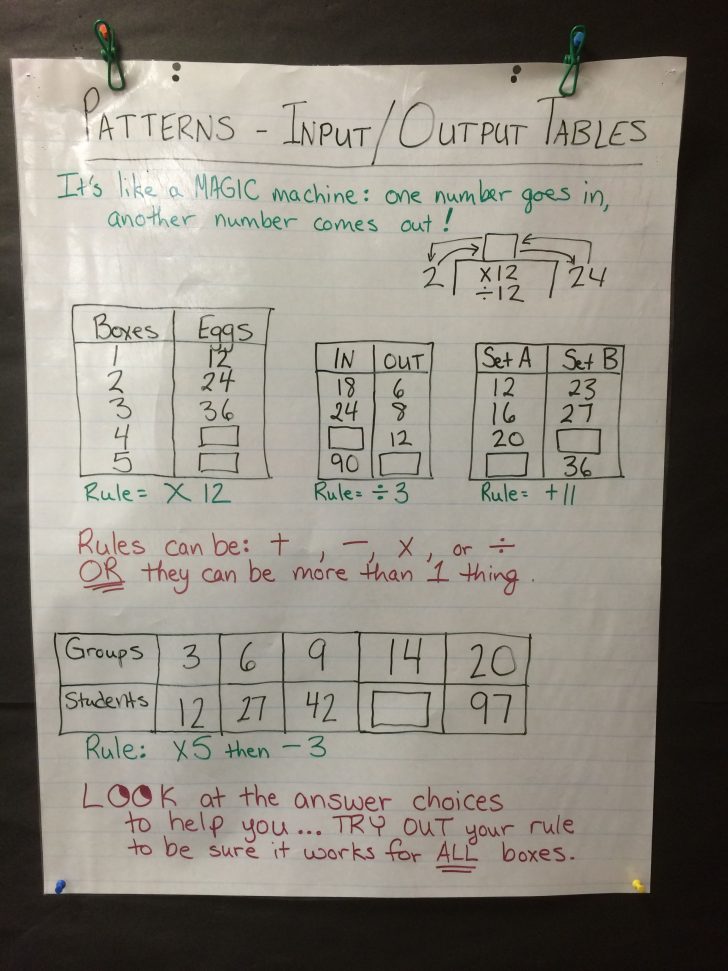 PATTERNS - INPUT/OUTPUT TABLES
It's like a MAGIC machine: one number goes in,
another number comes out!
2 x12 24
÷12
Boxes Eggs
1 12
2 24
3 36
4
5
Rule= x 12
IN OUT
18 6
24 8
12
90
Rule= ÷3
Set A Set B
12 23
16 27
20
36
Rule= +11
Rules can be: +, -, x, or ÷
OR they can be more than 1 thing.
Groups 3 6 9 14 20
Students 12 27 42 97
Rule: x5 then -3
LOOK at the answer choices
to help you... TRY OUT your rule
to be sure it works for ALL boxes.